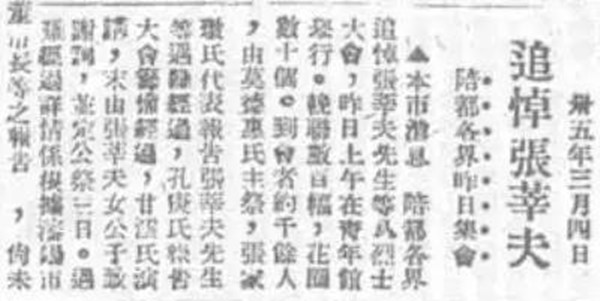 卅五年三月四日
追悼張莘夫
陪都各界昨日集會
▲本市消息 陪都各界
追悼張莘夫先生等八烈士
大會,昨日上午在青年館
舉行。輓聯數百幅,花圈
數十個。到會者約千餘人
,由莫德惠氏主祭,張家
氏代表報告張莘夫先生
等遇難經過,孔庚氏報告
大會籌備經過,甘氏演
講,末由張莘夫女公子致
謝詞,並定公祭三日。遇
難經過詳情係根據瀋陽市
市長等之報告,尚未